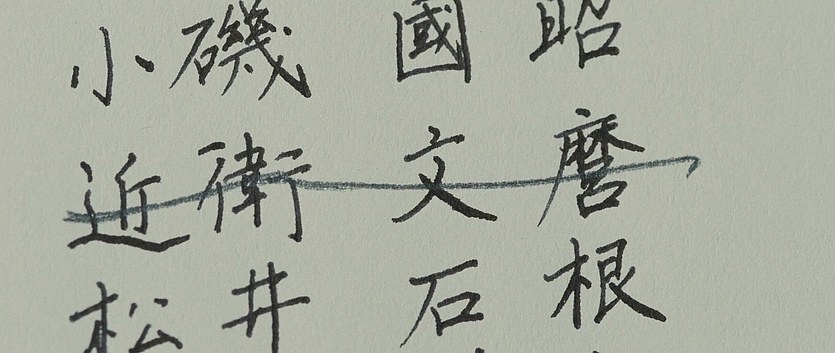 小磯 國昭
近衛 文麿
松井 石根